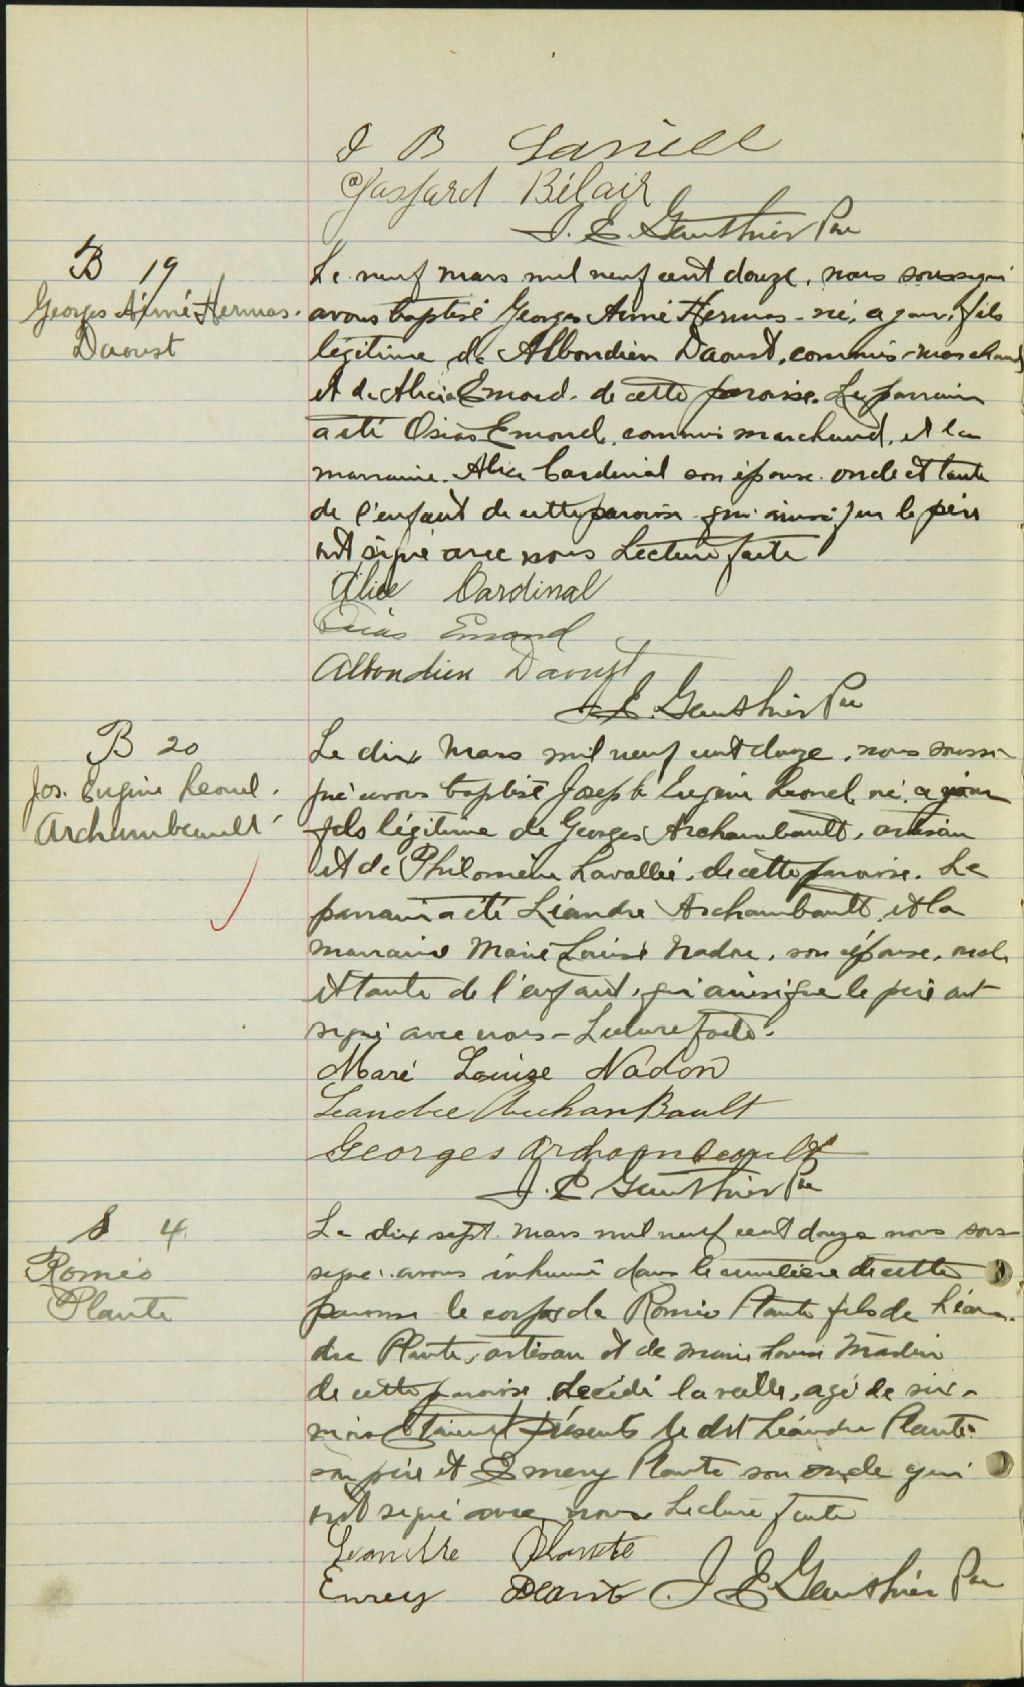 J B Lariell
Gaspard Bélair
J. E. Gauthier Ptre
B 19
Georges Aimé Hermas
Daoust
Le neuf mars mil neuf cent douze, nous soussigné
avons baptisé Georges Aimé Hermas - né, ce jour, fils
légitime de Albondien Daoust, commis-marchand
et de Alicia Emond - de cette paroisse. Le parrain
a été Osias Emond, commis marchand, et la
marraine Alice Cardinal son épouse oncle et tante
de l'enfant de cette paroisse qui ainsi que le père
ont signé avec nous Lecture faite
Alice Cardinal
Osias Emond
Albondien Daoust
J. E. Gauthier Ptre
B 20
Jos. Eugène Leonel
Archambault
Le dix mars mil neuf cent douze, nous soussi-
gné avons baptisé Joseph Eugène Leonel, né, ce jour
fils légitime de Georges Archambault, artisan
et de Philomène Lavallée, de cette paroisse. Le
parrain a été Léandre Archambault, et la
marraine Marie Louise Nadon, son épouse, oncle
et tante de l'enfant, qui ainsi que le père ont
signé avec nous - Lecture faite.
Marè Louise Nadon
Leandre Archambault
Georges Archambault
J. E Gauthier Ptre
S 4
Roméo
Plante
Le dix sept mars mil neuf cent douze nous sous
signé avons inhumé dans le cimetière de cette
paroisse le corps de Roméo Plante fils de Léan-
dre Plante, artisan et de Marie Louise
de cette paroisse décédé la veille, agé de six-
mois Etaient Présents le dit Léandre Plante
son père et Emery Plante son oncle qui
ont signé avec nous Lecture faite
Leandre Plante
Emrey Plante J E Gauthier Ptre